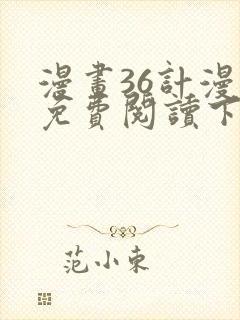 漫畫36計漫
免費閱讀下
范小東